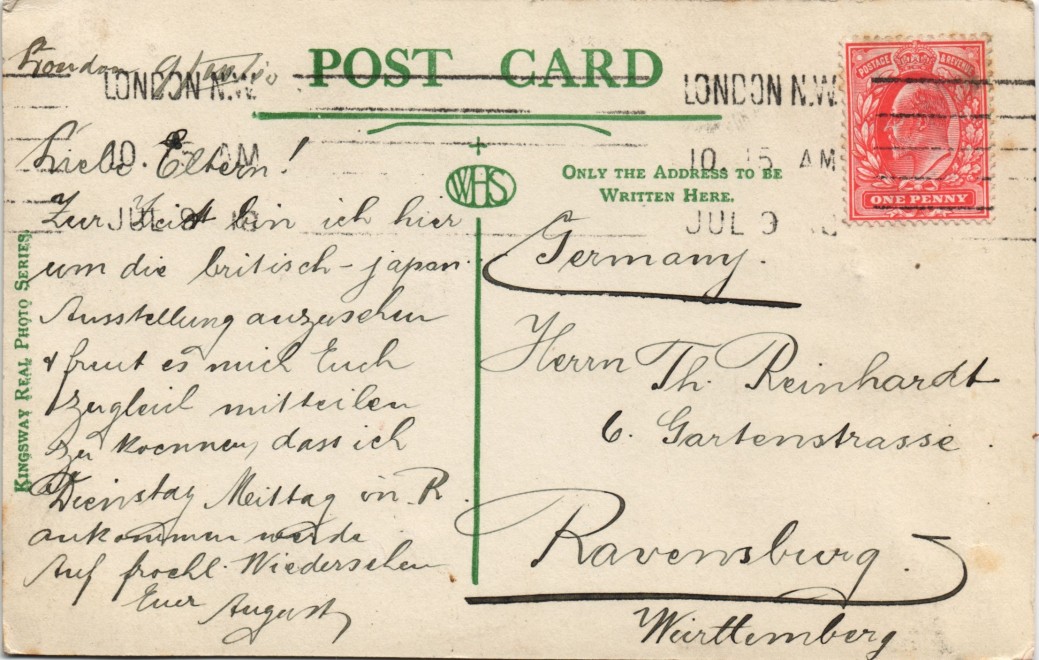 POST CARD
London 9
LONDON N.W.
10. 15 AM
JUL 9 10
LONDON N.W.
10. 15 AM
JUL 9 10
POSTAGE & REVENUE
ONE PENNY
WHS
ONLY THE ADDRESS TO BE
WRITTEN HERE.
KINGSWAY REAL PHOTO SERIES.
Liebe Eltern!
Zur Zeit bin ich hier
um die britisch-japan.
Ausstellung anzusehen
& freut es mich Euch
zugleich mitteilen
zu koennen, dass ich
Dienstag Mittag in R.
ankommen werde
Auf froehl. Wiedersehen
Euer August
Germany.
Herrn Th. Reinhardt
6. Gartenstrasse.
Ravensburg.
Württemberg